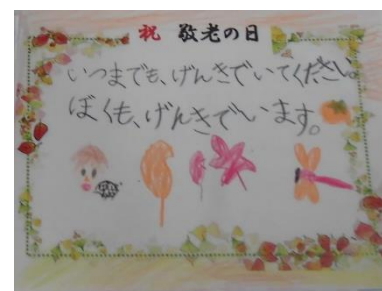 祝 敬老の日
いつまでも、げんきでいてください。
ぼくも、げんきでいます。